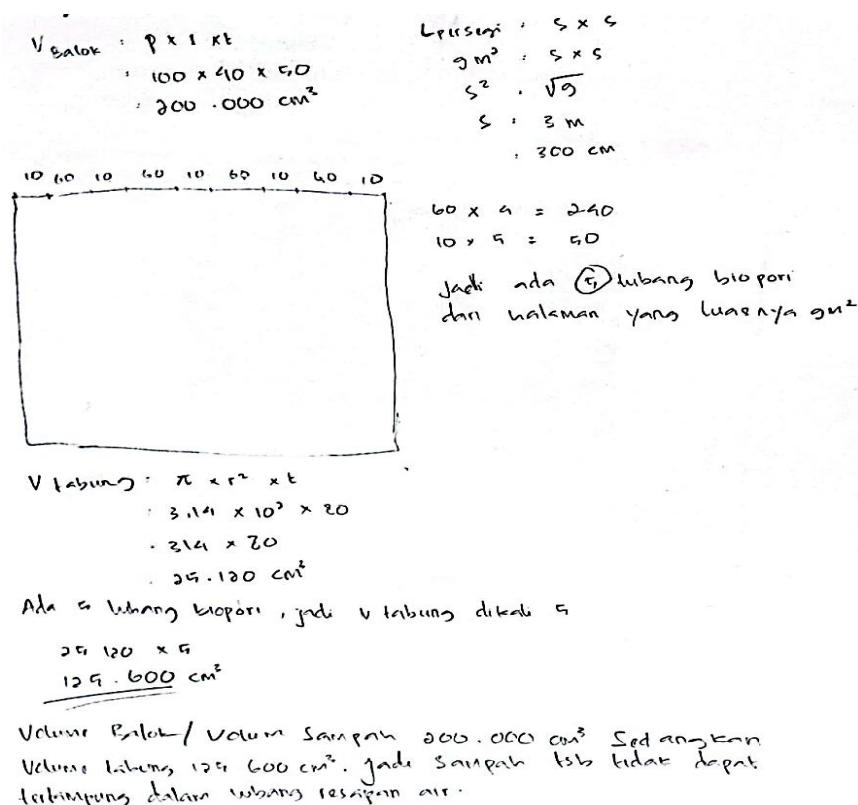 V Balok : p x l x t
: 100 x 40 x 50
: 200.000 cm³
L persegi : s x s
9 m² : s x s
s² : √9
s : 3 m
: 300 cm
10 60 10 60 10 60 10 60 10
60 x 4 = 240
10 x 5 = 50
Jadi ada 5 lubang biopori
dari halaman yang luasnya 9m²
V tabung : π x r² x t
: 3,14 x 10² x 80
: 314 x 80
: 25.120 cm³
Ada 5 lubang biopori, jadi v tabung dikali 5
25 120 x 5
125.600 cm³
Volume Balok / Volum Sampah 200.000 cm³ Sedangkan
Volume tabung 125 600 cm³. Jadi sampah tsb tidak dapat
tertampung dalam lubang resapan air.